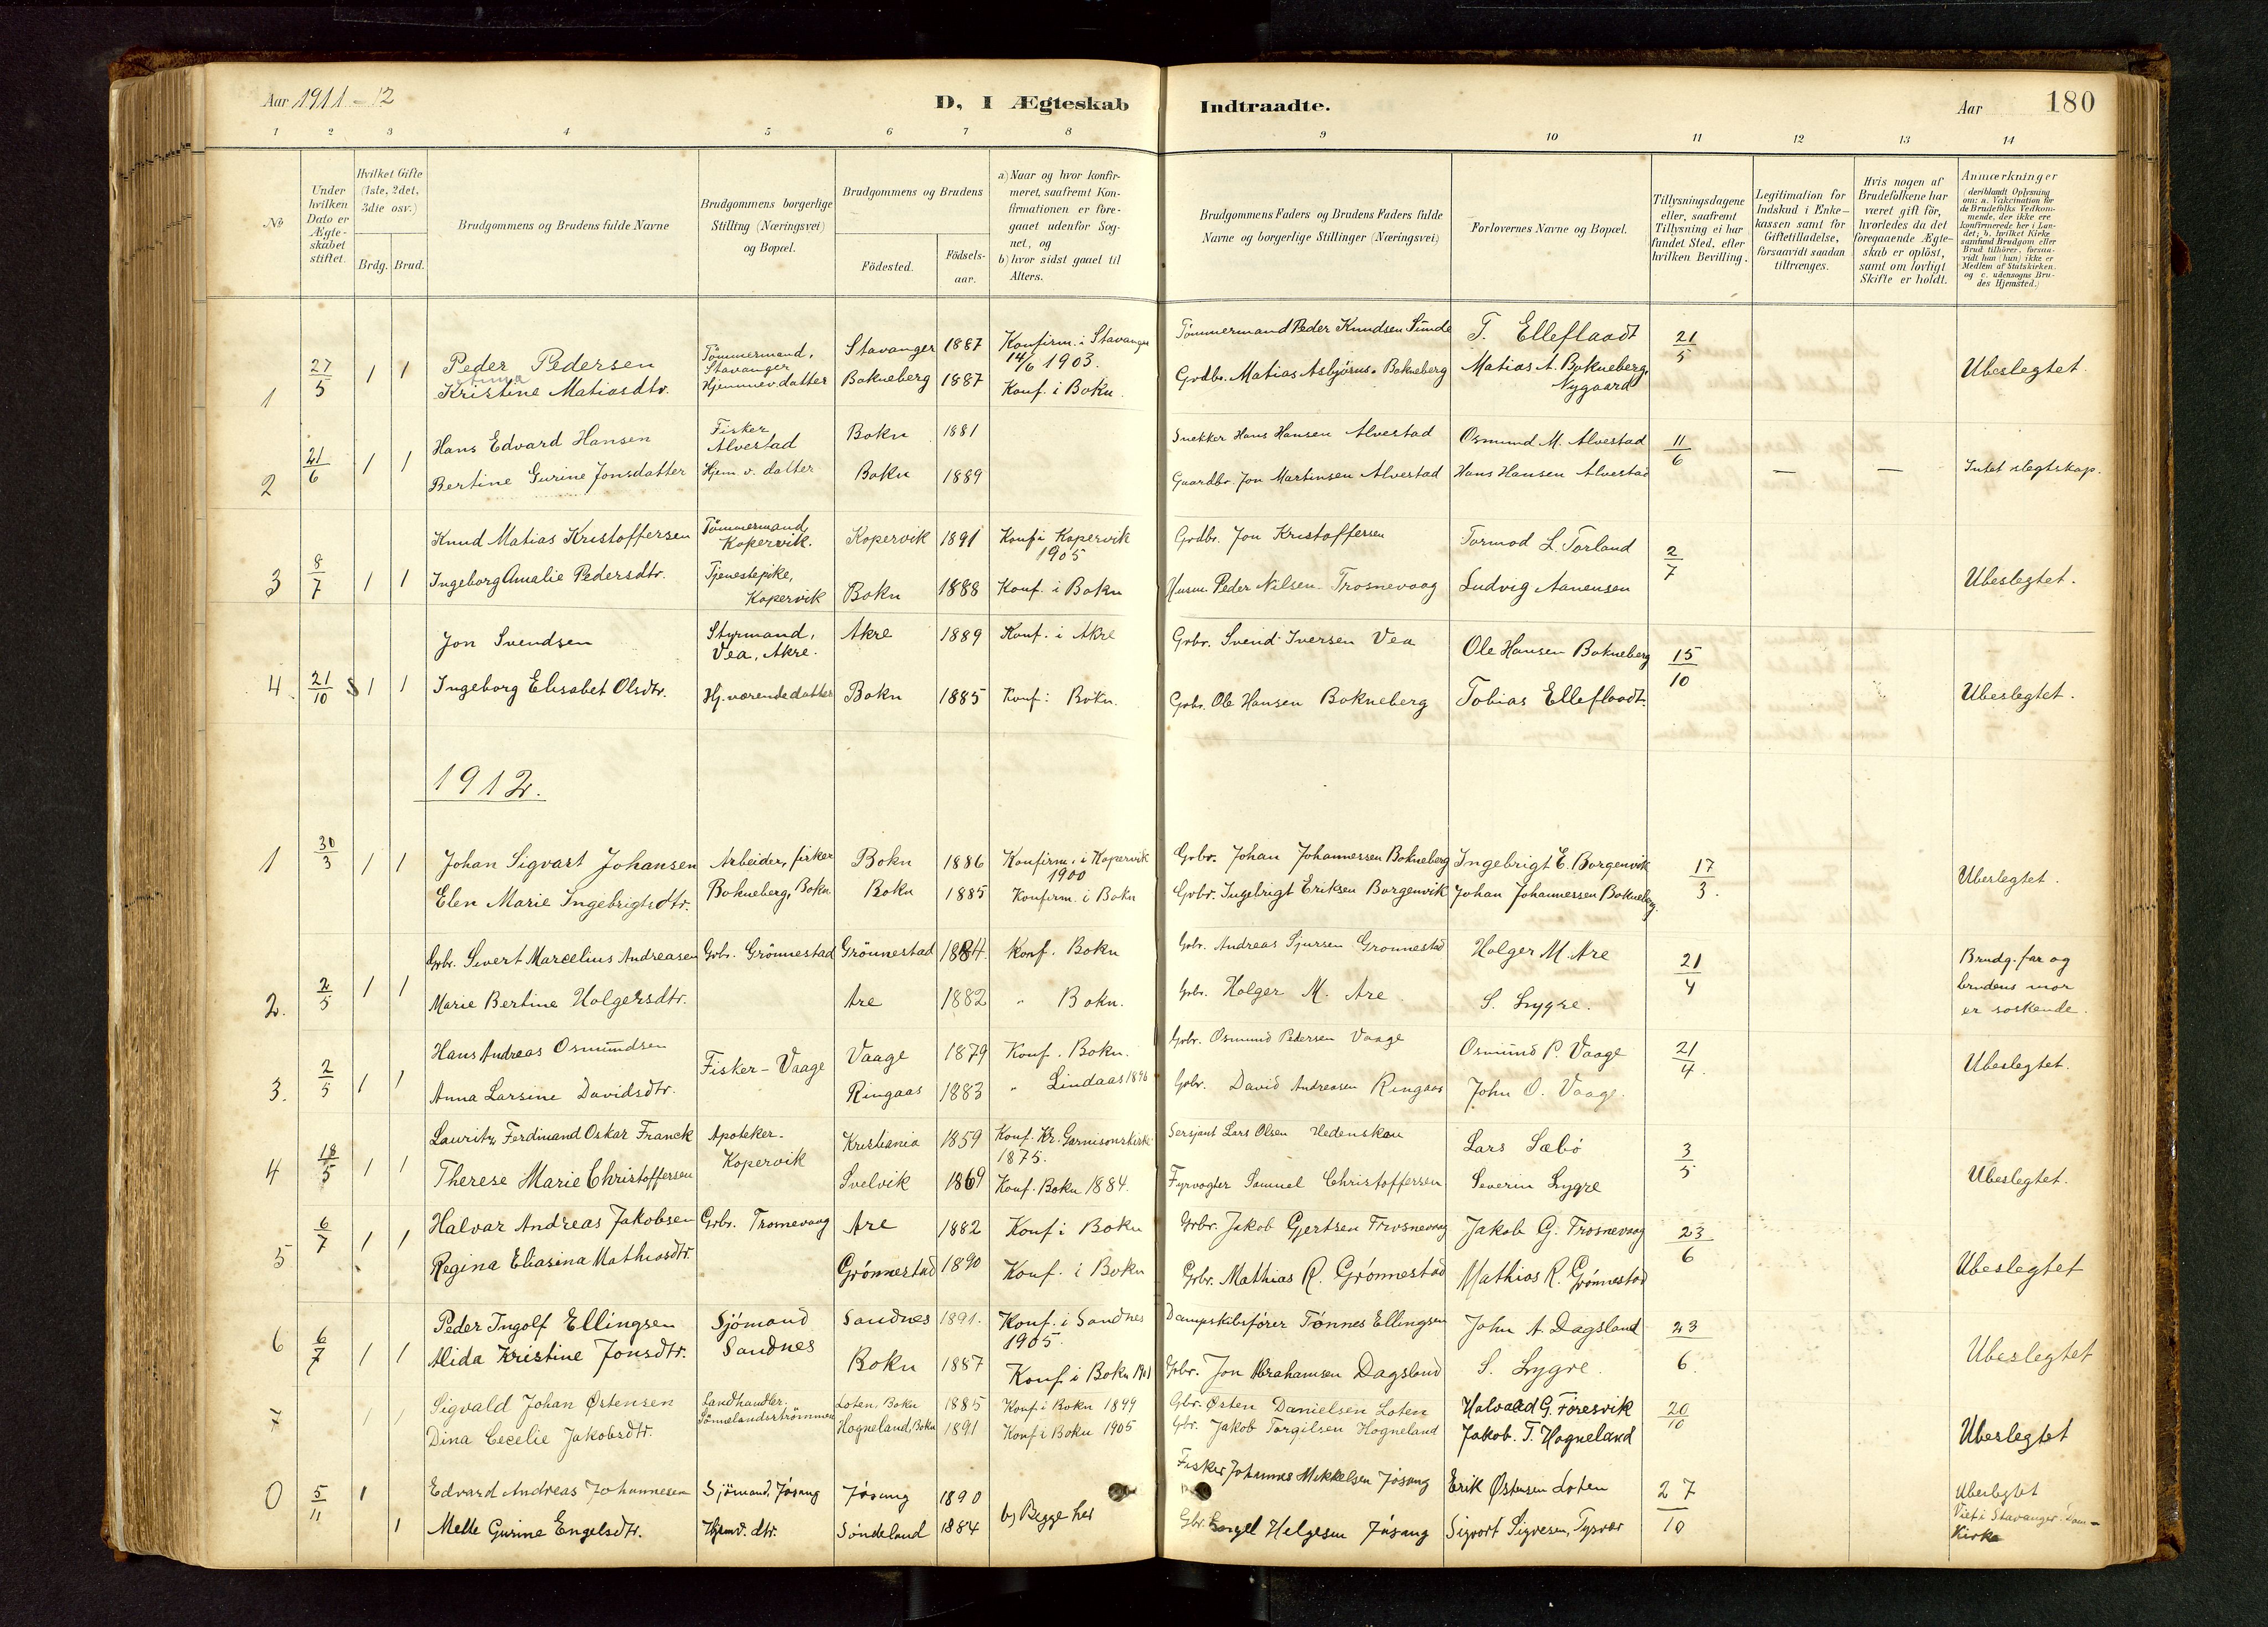 Aar 1911-12 D, I Ægteskab Indtraadte. Aar 180
1 2 3 4 5 6 7 8 9 10 11 12 13 14
No
Under hvilken Dato er Ægte-skabet stiftet.
Hvilket Gifte (1ste, 2det, 3die osv.)
Brdg. Brud.
Brudgommens og Brudens fulde Navne
Brudgommens borgerlige Stilling (Næringsvei) og Bopæl.
Brudgommens og Brudens
Födested. Födsels-aar.
a) Naar og hvor konfir-meret, saafremt Kon-firmationen er fore-gaaet udenfor Sog-net, og
b) hvor sidst gaaet til Alters.
Brudgommens Faders og Brudens Faders fulde Navne og borgerlige Stillinger (Næringsvei)
Forlovernes Navne og Bopæl.
Tillysningsdagene eller, saafremt Tillysning ei har fundet Sted, efter hvilken Bevilling.
Legitimation for Indskud i Enke-kassen samt for Giftetilladelse, forsaavidt saadan tiltrænges.
Hvis nogen af Brudefolkene har været gift för, hvorledes da det foregaaende Ægte-skab er oplöst, samt om lovligt Skifte er holdt.
Anmærkninger (deriblandt Oplysning om: a. Vakcination for de Brudefolks Vedkom-mende, der ikke ere konfirmerede her i Lan-det; b. hvilket Kirke samfund Brudgom eller Brud tilhörer, forsaa-vidt han (hun) ikke er Medlem af Statskirken. og c. udensogns Bru-des Hjemsted.)
1 27/5 1 1 Peder Pedersen Tömmermand, Stavanger Stavanger 1887 Konfirm. i Stavanger 14/6 1903. Tömmermand Peder Knudsen Sunde T. Elleflaadt 21/5
Kristine Matiasdtr. Hjemmev. datter Bokneberg 1887 Konf. i Bokn. Grdbr. Matias Asbjörns. Bokneberg Matias A. Bokneberg, Nygaard Ubeslegtet.
2 21/6 1 1 Hans Edvard Hansen Fisker Alvestad Bokn 1881 Snekker Hans Hansen Alvestad Osmund M. Alvestad 11/6
Bertine Gurine Jonsdatter Hjem v. datter Bokn 1889 Gaardbr. Jon Martinsen Alvestad Hans Hansen Alvestad — — Intet slegtskap.
3 8/7 1 1 Knud Matias Kristoffersen Tömmermand, Kopervik. Kopervik 1891 Konf i Kopervik 1905 Grdbr. Jon Kristoffersen Tormod L. Torland 2/7
Ingeborg Amalie Pedersdtr. Tjenestepike, Kopervik Bokn 1888 Konf. i Bokn Husm. Peder Nilsen Trosnevaag Ludvig Aanensen Ubeslegtet.
4. 21/10 1 1 Jon Svendsen Styrmand, Vea, Akre. Akre 1889 Konf. i Akre Grbr. Svend Iversen Vea Ole Hansen Bokneberg 15/10
Ingeborg Elisabet Olsdtr. Hj. værende datter Bokn 1885 Konf: Bokn. Grbr. Ole Hansen Bokneberg Tobias Elleflaadt. Ubeslegtet.
1912.
1 30/3 1 1 Johan Sigvart Johansen Arbeider, fisker Bokn 1886 Konfirm. i Kopervik 1900 Grbr. Johan Johannessen Bokneberg Ingebrigt E. Borgenvik 17/3. Ubeslegtet.
Elen Marie Ingebrigtsdtr. Bokneberg, Bokn Bokn 1885 Konfirm. i Bokn Grbr. Ingebrigt Eriksen Borgenvik Johan Johannessen Bokneberg.
2. 2/5 1 1 Grbr. Sivert Marcelius Andreasen Grbr. Grönnestad Grönnestad 1884. Konf. Bokn Grbr. Andreas Sjursen Gronnestad Holger M. Are 21/4 Brudg. far og
Marie Bertine Holgersdtr. Are 1882 " Bokn. Grbr. Holger M. Are S. Lygre. brudens mor
er søskende.
3. 2/5 1 1 Hans Andreas Osmundsen Fisker - Vaage Vaage 1879 Konf. Bokn. Grbr. Osmund Pedersen Vaage Osmund P. Vaage 21/4. Ubeslegtet.
Anna Larsine Davidsdtr. Ringaas 1883 " Lindaas 1896 Grbr. David Andreasen Ringaas John O. Vaage.
4 18/5 1 1 Lauritz Ferdinand Oskar Franck Apoteker. Kopervik Kristiania 1859 Konf. Kr. Garnisonskirke 1875. Sersjant Lars Olsen Hedenskau Lars Sæbö 3/5
Therese Marie Christoffersen Svelvik 1869 Konf. Bokn 1884. Fyrvogter Samuel Christoffersen Severin Lygre Ubeslegtet.
5 6/7 1 1 Halvar Andreas Jakobsen Grbr. Trosnevaag Are 1882 Konf i Bokn Grbr. Jakob Gjertsen Trosnevaag Jakob G. Trosnevaag 23/6
Regina Eliasina Mathiasdtr. Grönnestad 1890 Konf. i Bokn Grbr. Mathias R. Grönnestad Mathias R. Grönnestad Ubeslegtet
6 6/7 1 1 Peder Ingolf Ellingsen Sjömand Sandnes Sandnes 1891. Konf. i Sandnes 1905. Dampskibsförer Tönnes Ellingsen John A. Dagsland 23/6.
Alida Kristine Jonsdtr. Bokn 1887 Konf i Bokn 1901 Grbr. Jon Abrahamsen Dagsland S. Lygre. Ubeslegtet
7 1 1 Sigvald Johan Østensen Landhandler, Loten, Bokn 1885 Konf i Bokn 1899 Gbr. Østen Danielsen Loten Halvard G. Føresvik 20/10
Dina Cecelie Jakobsdtr. Hogneland, Bokn 1891 Konf i Bokn 1905 Gbr. Jakob Torgilsen Hogneland Jakob. T. Hogneland Ubeslegtet
0 5/11 1 Edvard Andreas Johannesen Sjömand, Jösang Jösang 1890 b) Begge her Fisker Johannes Mikkelsen Jösang Erik Østensen Loten 27/10 Ubeslegtet
1 Melle Gurine Engelsdtr. Hjemv. dtr. Söndeland 1884 Gbr. Engel Helgesen Jösang Sigvort Sigvesen, Tysvær Viet i Stavanger Dom-
Kirke